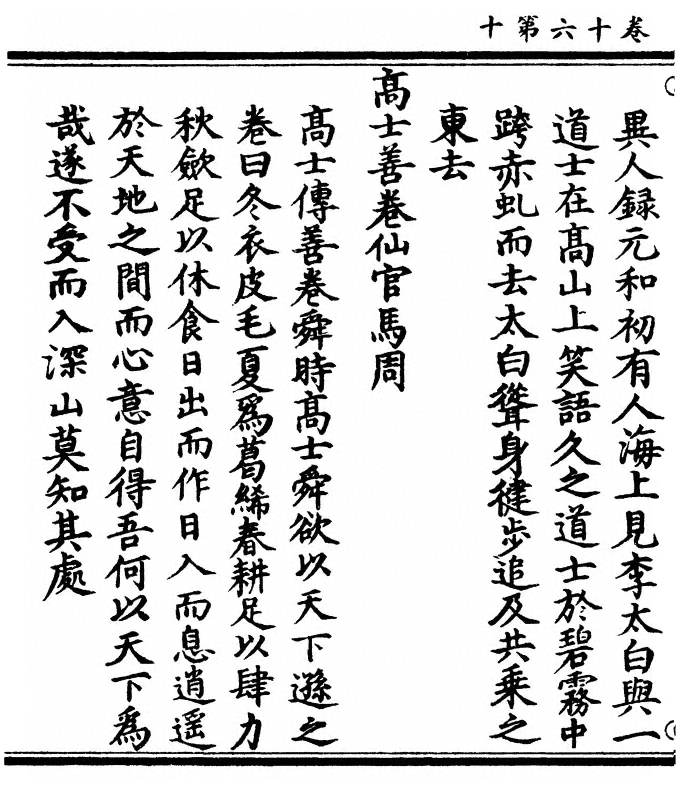 卷十六第十
異人録元和初有人海上見李太白與一
道士在髙山上笑語久之道士於碧霧中
跨赤虬而去太白聳身健步追及共乘之
東去
髙士善卷仙官馬周
髙士傳善卷舜時髙士舜欲以天下遜之
卷曰冬衣皮毛夏爲葛絺春耕足以肆力
秋斂足以休食日出而作日入而息逍遥
於天地之間而心意自得吾何以天下爲
哉遂不受而入深山莫知其處